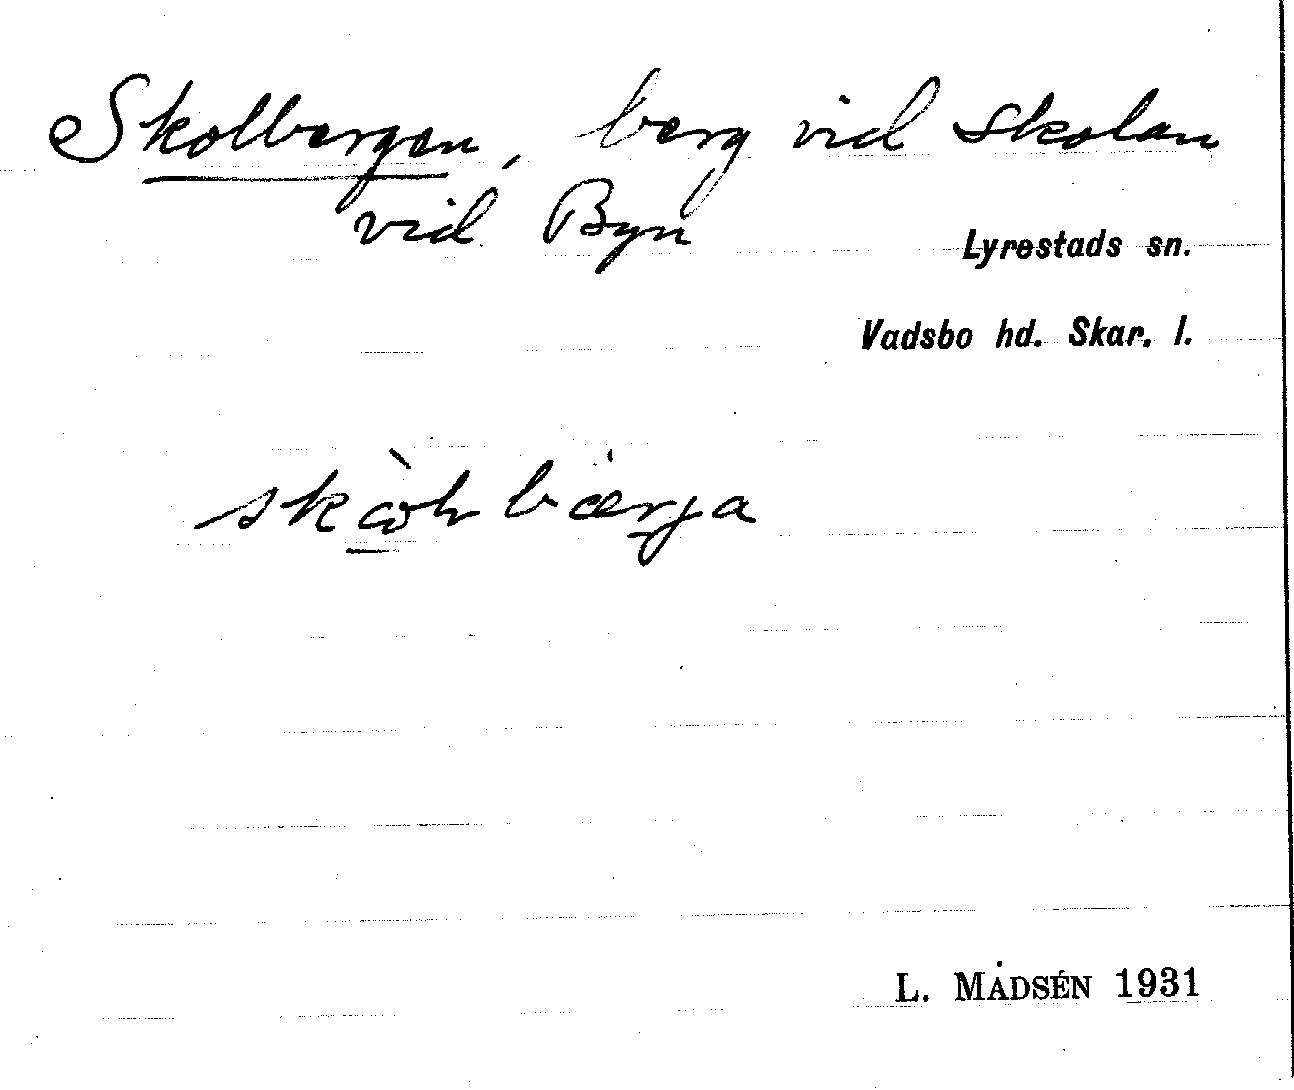 Skolbergen, berg vid skolan
vid Byn
Lyrestads sn.
Vadsbo hd. Skar. l.
L. MADSÉN 1931